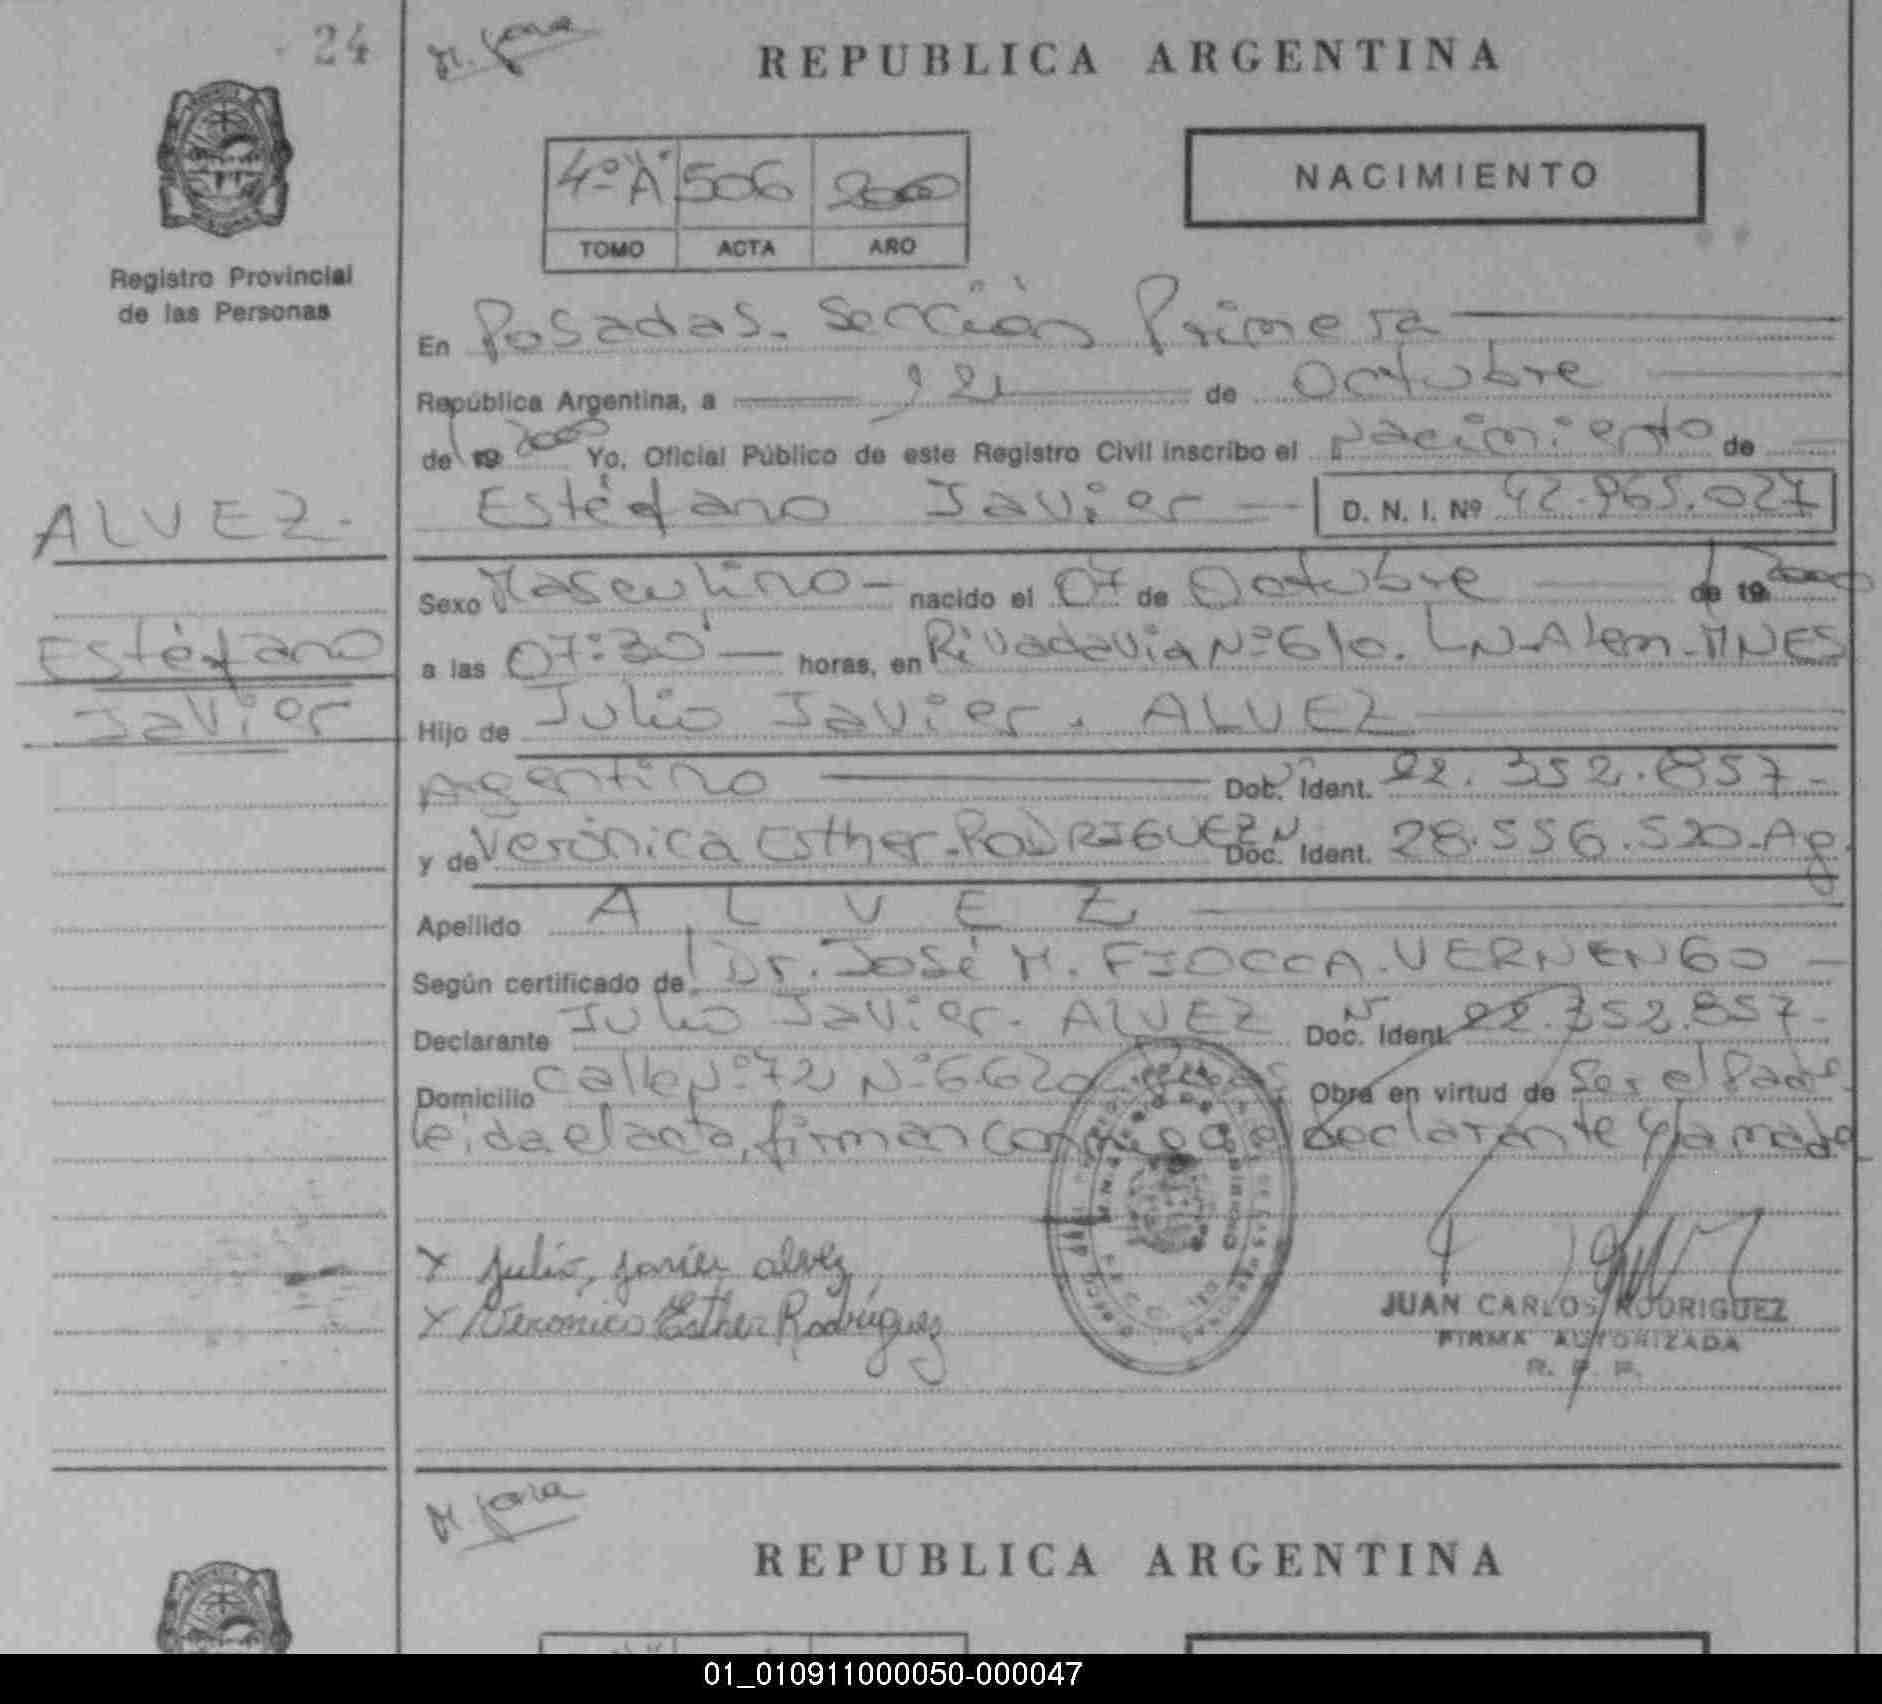 24
M. Jara
REPUBLICA ARGENTINA
NACIMIENTO
4º "A" 506 2000
TOMO ACTA AÑO
Registro Provincial
de las Personas
En Posadas. Sección Primera
República Argentina, a de Octubre
de 19 2000 Yo, Oficial Público de este Registro Civil inscribo el Nacimiento de
Estéfano Javier D. N. I. Nº 42.965.027
ALVEZ.
Estéfano
Javier
Sexo Masculino nacido el 07 de Octubre de 19 2000
a las 07:30' horas, en Rivadavia Nº 610. LN-Alem-MNES
Hijo de Julio Javier. ALVEZ
Argentino Doc. Ident. 22.352.857-
y de Verónica Esther-RODRIGUEZ Doc. Ident. 28.556.520-Ag.
Apellido A L V E Z
Según certificado de Dr. José M. FIOCCA-VERNENGO
Declarante Julio Javier. ALVEZ Doc. Ident. 22.352.857-
Domicilio Calle Nº 72 Nº 6620 Obra en virtud de Ser el Padre-
leida el acta, firman conmigo el declarante y la madre
x Julio, Javier alvez
x Veronica Esther Rodríguez
JUAN CARLOS RODRIGUEZ
FIRMA AUTORIZADA
R. P. P.
M. Jara
REPUBLICA ARGENTINA
01_010911000050-000047